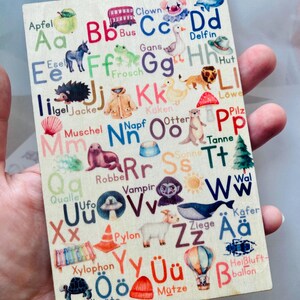 Apfel Aa Bb Bus Clown Cc Delfin Dd
Esel Ee Ff Frosch Gans Gg Hh Hut
Ii Igel Jj Jacke Kk Löwe Ll
Muschel Mm Nn Napf Otter Oo Pilz Pp
Qualle Qq Robbe Rr Ss Tanne Tt
Ufo Uu Vampir Vv Wal Ww
Xylophon Xx Pylon Yy Ziege Zz Käfer Ää
Öö Üü Mütze Heißluft-
ballon ß